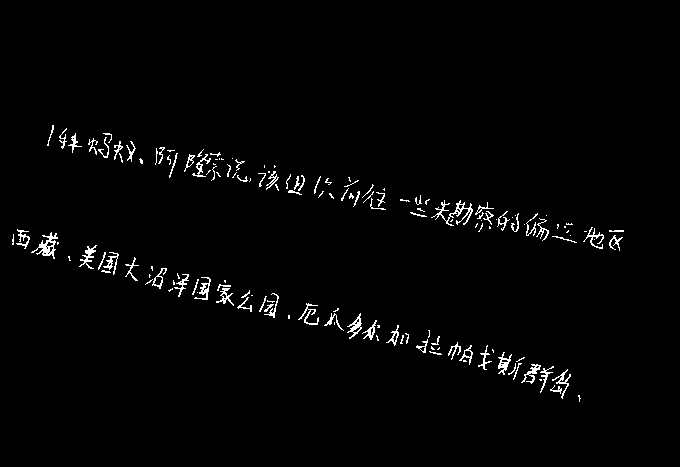 1种蚂蚁、阿隆索说,该组织前往一些未勘察的偏远地区
西藏、美国大沼泽国家公园、厄瓜多尔加拉帕戈斯群岛、